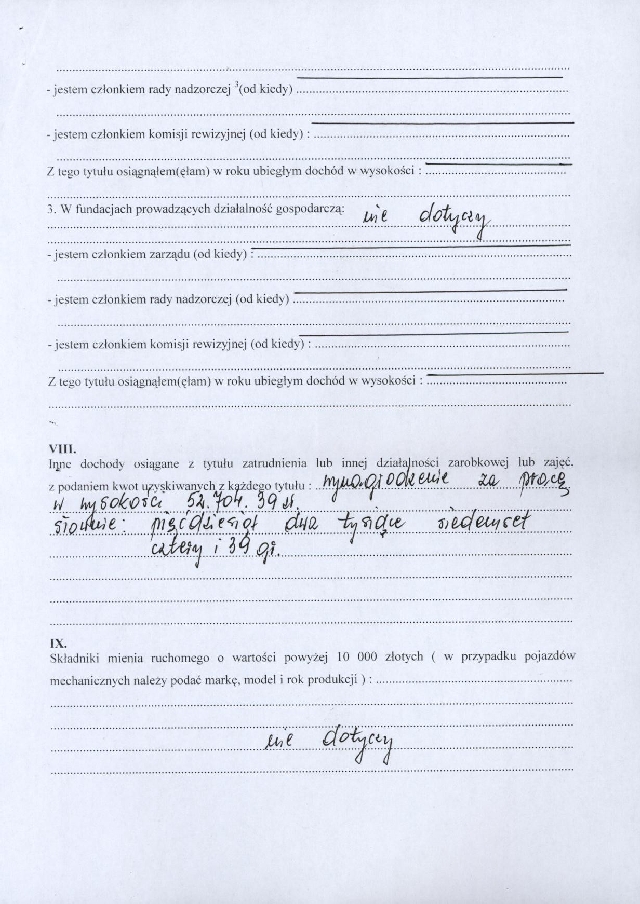 - jestem członkiem rady nadzorczej ³(od kiedy)
- jestem członkiem komisji rewizyjnej (od kiedy) :
Z tego tytułu osiągnąłem(ęłam) w roku ubiegłym dochód w wysokości :
3. W fundacjach prowadzących działalność gospodarczą: nie dotyczy
- jestem członkiem zarządu (od kiedy) :
- jestem członkiem rady nadzorczej (od kiedy)
- jestem członkiem komisji rewizyjnej (od kiedy) :
Z tego tytułu osiągnąłem(ęłam) w roku ubiegłym dochód w wysokości :
VIII.
Inne dochody osiągane z tytułu zatrudnienia lub innej działalności zarobkowej lub zajęć,
z podaniem kwot uzyskiwanych z każdego tytułu : wynagrodzenie za pracę
w wysokości 52.704.39 zł.
słownie: pięćdziesiąt dwa tysiące siedemset
cztery i 39 gr.
IX.
Składniki mienia ruchomego o wartości powyżej 10 000 złotych ( w przypadku pojazdów
mechanicznych należy podać markę, model i rok produkcji ) :
nie dotyczy